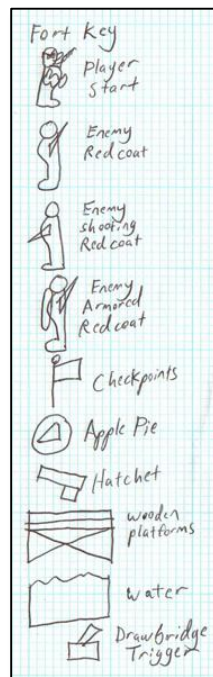 Fort Key
Player
Start
Enemy
Redcoat
Enemy
shooting
Redcoat
Enemy
Armored
Redcoat
Checkpoints
Apple Pie
Hatchet
wooden
platforms
water
Drawbridge
Trigger